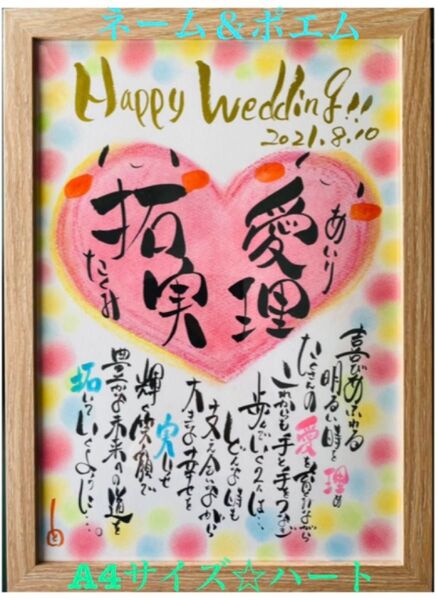 ネーム&ポエム
Happy Wedding!!
2021.8.10
愛理
あいり
拓実
たくみ
喜びあふれる
明るい時を
たくさんの愛を
これからも手と手をつなぎ
歩んでいく2人は…
どんな時も
支え合いながら
大きな幸せを
実らせ
輝く笑顔で
豊かな未来への道を
拓いていくように…。
A4サイズ☆ハート